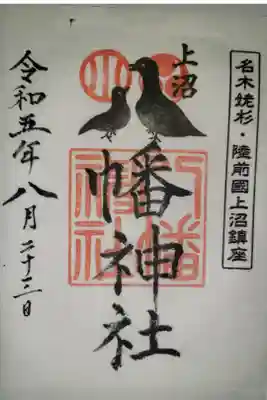 名木姥杉・陸前國上沼鎮座
上沼
幡神社
八幡
神社
令和五年八月二十三日